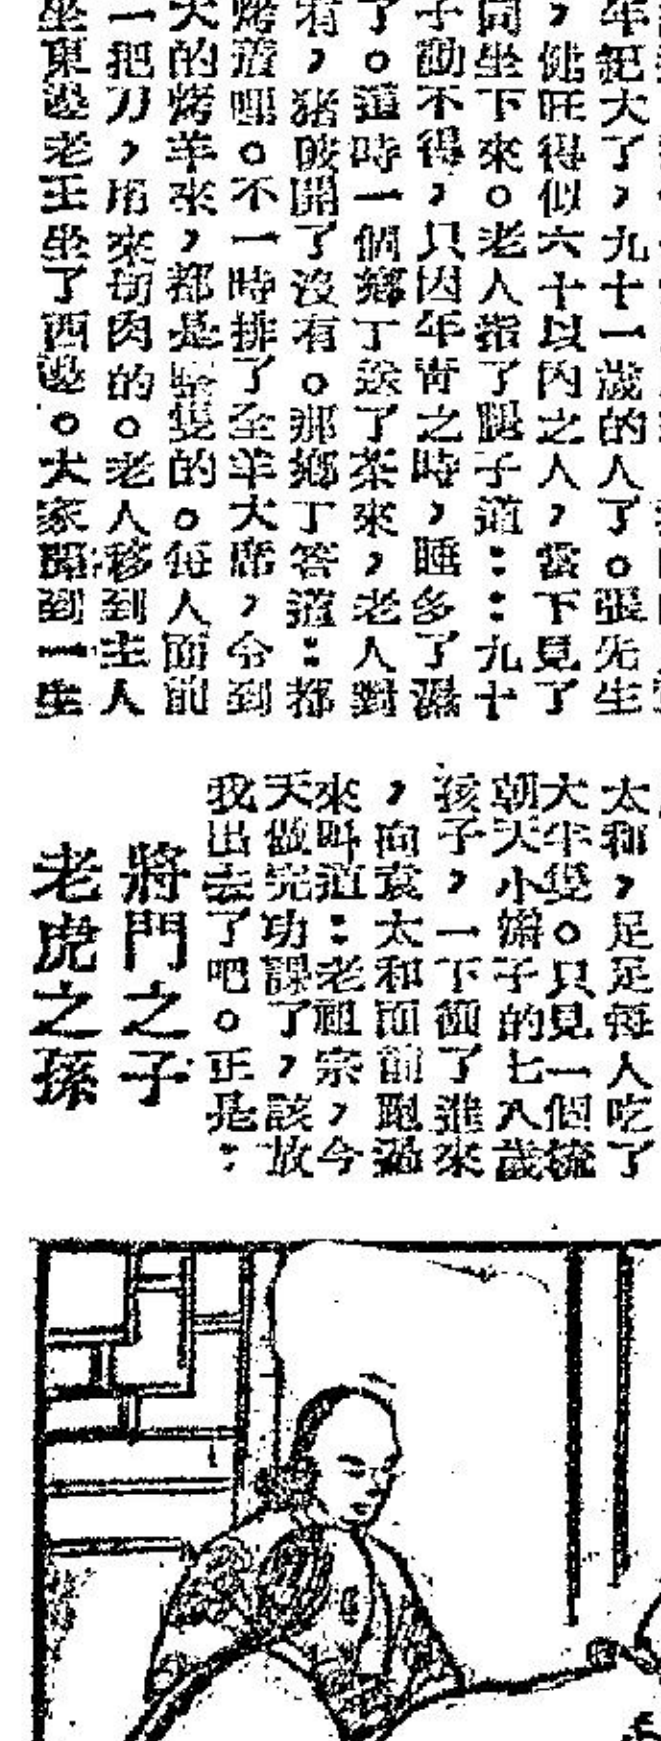 年紀大了，九十一歲的人了。張先生
，健旺得似六十以內之人，當下見了
同坐下來。老人指了腿子道：：九十
子勸不得，只因年青之時，睡多了濕
了。這時一個鄉丁送了茶來，老人對
有，猪破開了沒有。那鄉丁答道：都
烤着哩。不一時排了全羊大席，令到
大的烤羊來，都是整隻的。每人面前
一把刀，用來切肉的。老人移到主人
坐東邊老王坐了西邊。大家鬧到一生
太和，足足每人吃了
大半隻。只見一個梳
朝天小辮子的七八歲
孩子，一下 了進來
，向袁太和面前跑過
來叫道：老祖宗，今
天做完功課了，該放
我出去了吧。正是：
將門之子
老虎之孫